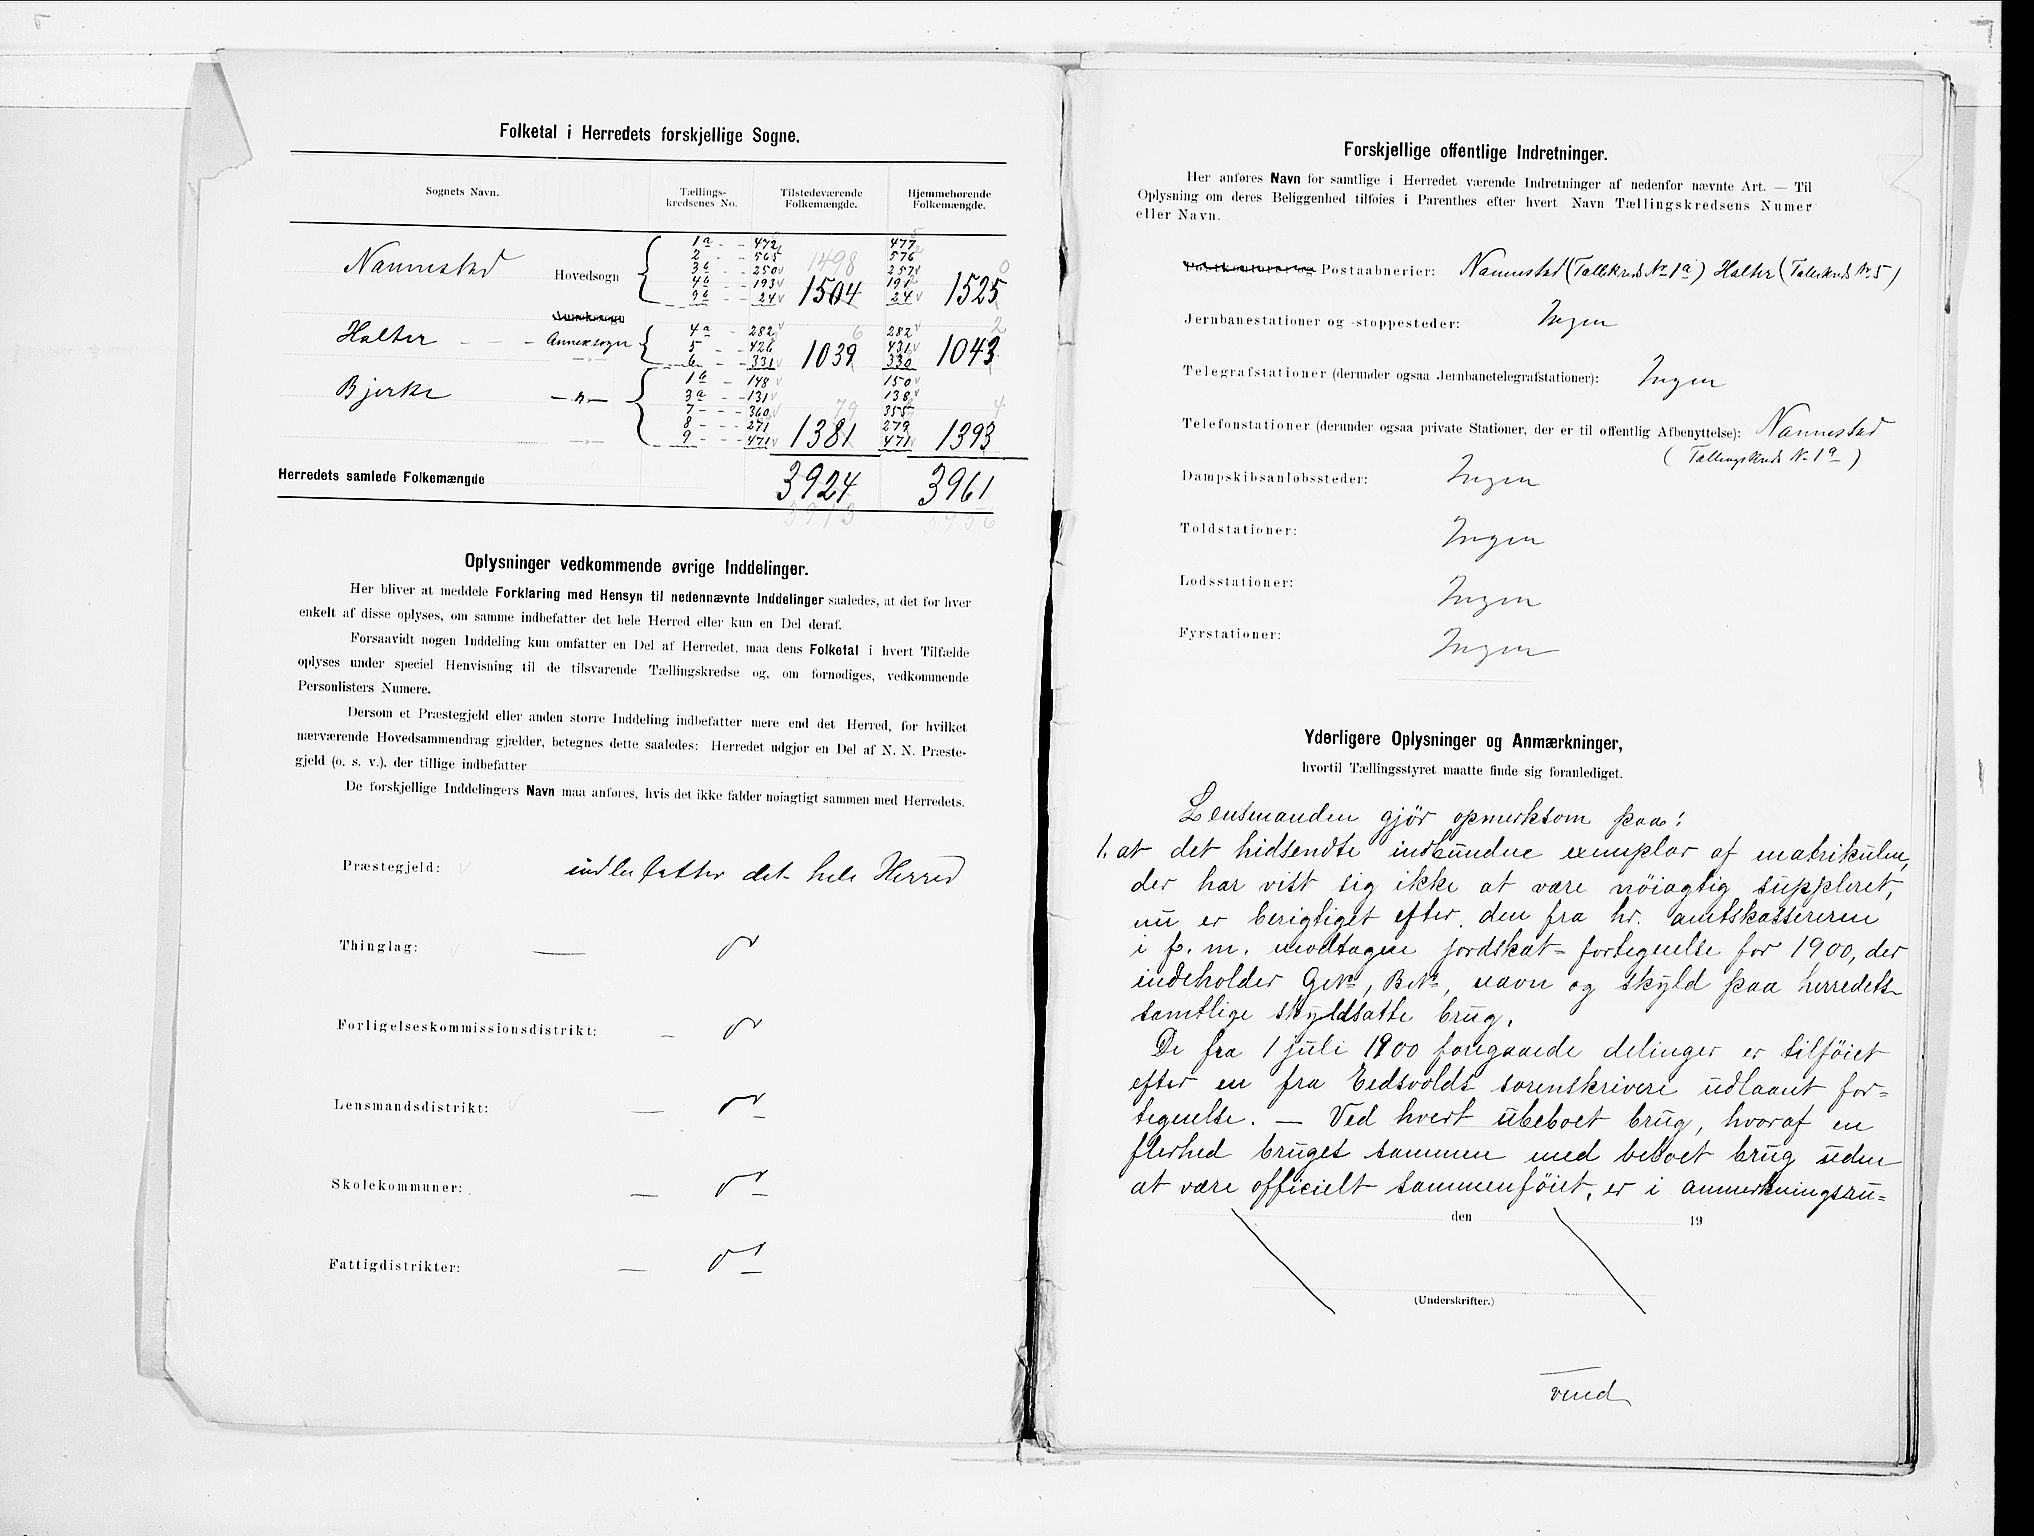 Folketal i Herredets forskjellige Sogne.
Sognets Navn.
Tællings-
kredsenes No.
Tilstedeværende
Folkemængde.
Hjemmehørende
Folkemængde.
Nannestad Hovedsogn
1a - - 472 477
2 - - 565 576
3b - - 250 257
4b - - 193 191
9b - - 24 24
1498
1504 1525
Holter - - - Annexsogn
4a - 282 282
5 - 426 431
6 - - 331 330
1039 1043
Bjerke — " —
1b - 148 150
3a - 131 138
7 - - - 360 355
8 - - - 271 279
9 - - - 471 471
1381 1393
Herredets samlede Folkemængde 3924 3961
3913 3956
Oplysninger vedkommende øvrige Inddelinger.
Her bliver at meddele Forklaring med Hensyn til nedennævnte Inddelinger saaledes, at det for hver
enkelt af disse oplyses, om samme indbefatter det hele Herred eller kun en Del deraf.
Forsaavidt nogen Inddeling kun omfatter en Del af Herredet, maa dens Folketal i hvert Tilfælde
oplyses under speciel Henvisning til de tilsvarende Tællingskredse og, om fornødiges, vedkommende
Personlisters Numere.
Dersom et Præstegjeld eller anden større Inddeling indbefatter mere end det Herred, for hvilket
nærværende Hovedsammendrag gjælder, betegnes dette saaledes: Herredet udgjør en Del af N. N. Præste-
gjeld (o. s. v.), der tillige indbefatter
De forskjellige Inddelingers Navn maa anføres, hvis det ikke falder nøiagtigt sammen med Herredets.
Præstegjeld: indbefatter det hele Herred
Thinglag: —
Forligelseskommissionsdistrikt: —
Lensmandsdistrikt: —
Skolekommuner: —
Fattigdistrikter: —
Forskjellige offentlige Indretninger.
Her anføres Navn for samtlige i Herredet værende Indretninger af nedenfor nævnte Art. — Til
Oplysning om deres Beliggenhed tilføies i Parenthes efter hvert Navn Tællingskredsens Numer
eller Navn.
Postaabnerier: Nannestad (Tællkreds No 1a) Holter (Tællkreds No 5)
Jernbanestationer og -stoppesteder: Ingen
Telegrafstationer (derunder ogsaa Jernbanetelegrafstationer): Ingen
Telefonstationer (derunder ogsaa private Stationer, der er til offentlig Afbenyttelse): Nannestad
(Tællingskreds No 1a)
Dampskibsanløbssteder: Ingen
Toldstationer: Ingen
Lodsstationer: Ingen
Fyrstationer: Ingen
Yderligere Oplysninger og Anmærkninger,
hvortil Tællingsstyret maatte finde sig foranlediget.
Lensmanden gjør opmerksom paa:
1. at det hidsendte indbundne exemplar af matrikulen,
der har vist sig ikke at være nöiagtig suppleret,
nu er berigtiget efter den fra hr. amtskassereren
i f. m. modtagne jordskat-fortegnelse for 1900, der
indeholder GNo, BNo, navn og skyld paa herredets
samtlige skyldsatte brug.
De fra 1 juli 1900 foregaaede delinger er tilföiet
efter en fra Eidsvolds sorenskriveri udlaant for-
tegnelse. — Ved hvert ubeboet brug, hvoraf en
flerhed bruges sammen med beboet brug uden
at være officielt sammenföiet, er i anmerkningsru-
den 19
(Underskrifter.)
vend